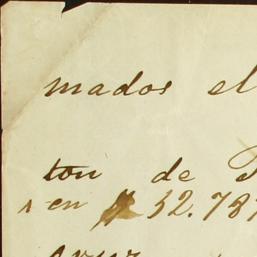 mados el
ton de
en $ 52.787